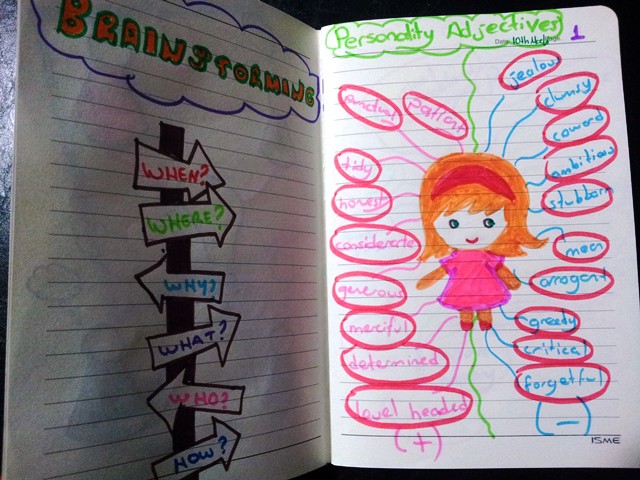 BRAINSTORMING
WHEN?
WHERE?
WHY?
WHAT?
WHO?
HOW?
Personality Adjectives
1
Punctual
Patient
tidy
honest
considerate
generous
merciful
determined
level headed
(+)
jealous
clumsy
coward
ambitious
stubborn
mean
arrogant
greedy
critical
forgetful
(-)
ISME